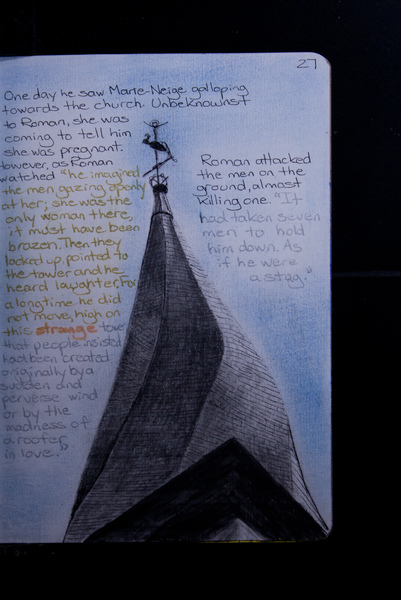 27
One day he saw Marie-Neige galloping
towards the church. Unbeknownst
to Roman, she was
coming to tell him
she was pregnant.
However, as Roman
watched "he imagined
the men gazing openly
at her; she was the
only woman there,
it must have been
brazen. Then they
looked up, pointed to
the tower and he
heard laughter. For
a long time he did
not move, high on
this strange tower
that people insisted
had been created
originally by a
sudden and
perverse wind
or by the
madness of
a roofer
in love."
Roman attacked
the men on the
ground, almost
killing one. "It
had taken seven
men to hold
him down. As
if he were
a stag."